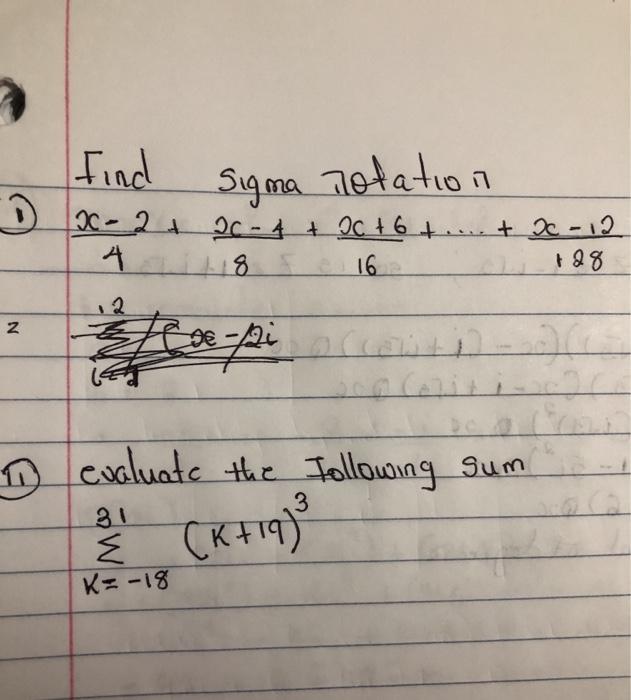 Find Sigma notation
① x-2/4 + x-4/8 + x+6/16 + .... + x-12/128
ⅱ evaluate the following sum
31
Σ (K+19)³
K=-18